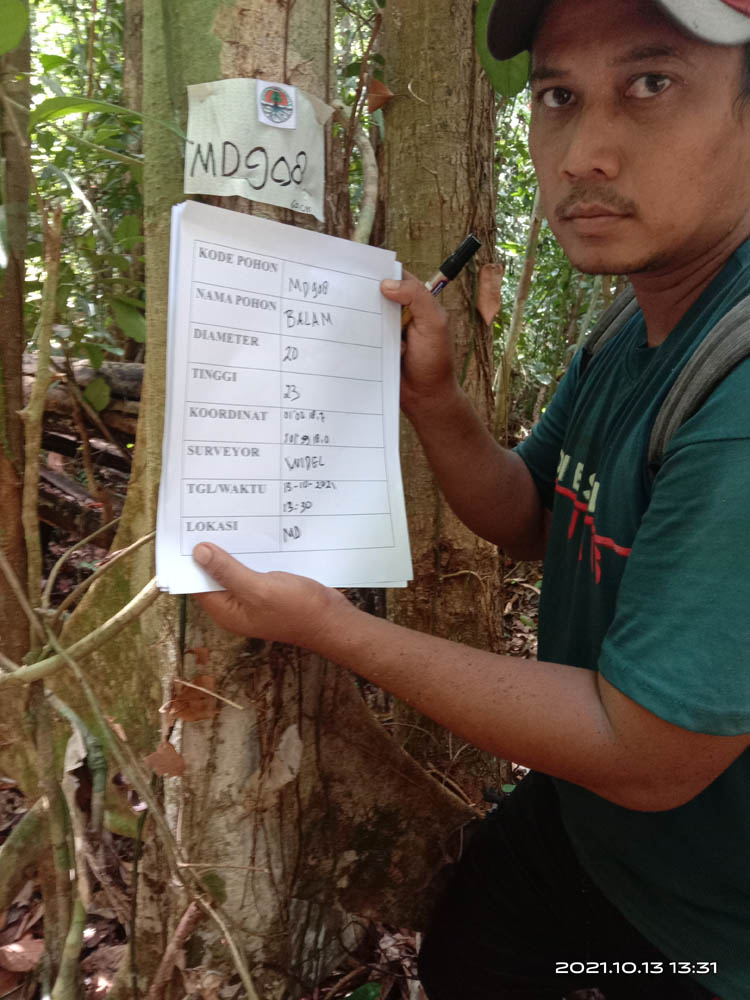 MD908
KODE POHON MD908
NAMA POHON BALAM
DIAMETER 20
TINGGI 23
KOORDINAT 01°02 18,7
SURVEYOR WIDEL
TGL/WAKTU 13-10-2021
13-30
LOKASI MD
2021.10.13 13:31